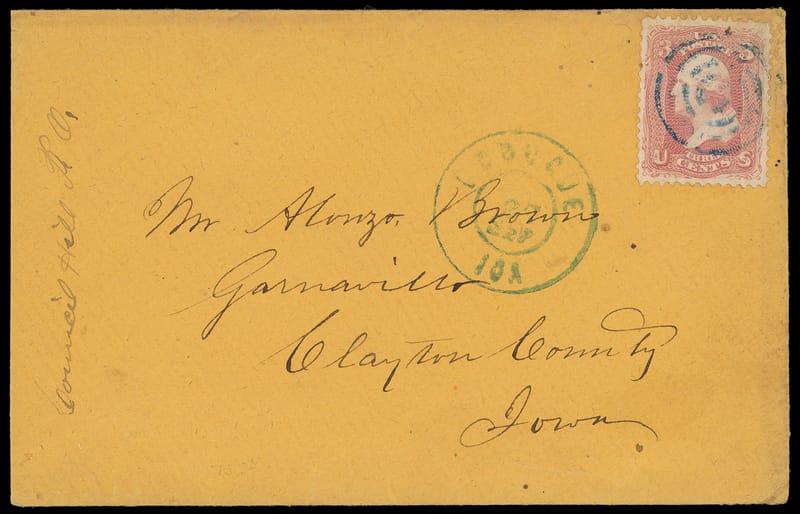 3 3
U CENTS S
DUBUQUE
27
IOA
Mr Alonzo. Brown
Garnavillo
Clayton County
Iowa
Council Hill P. O.